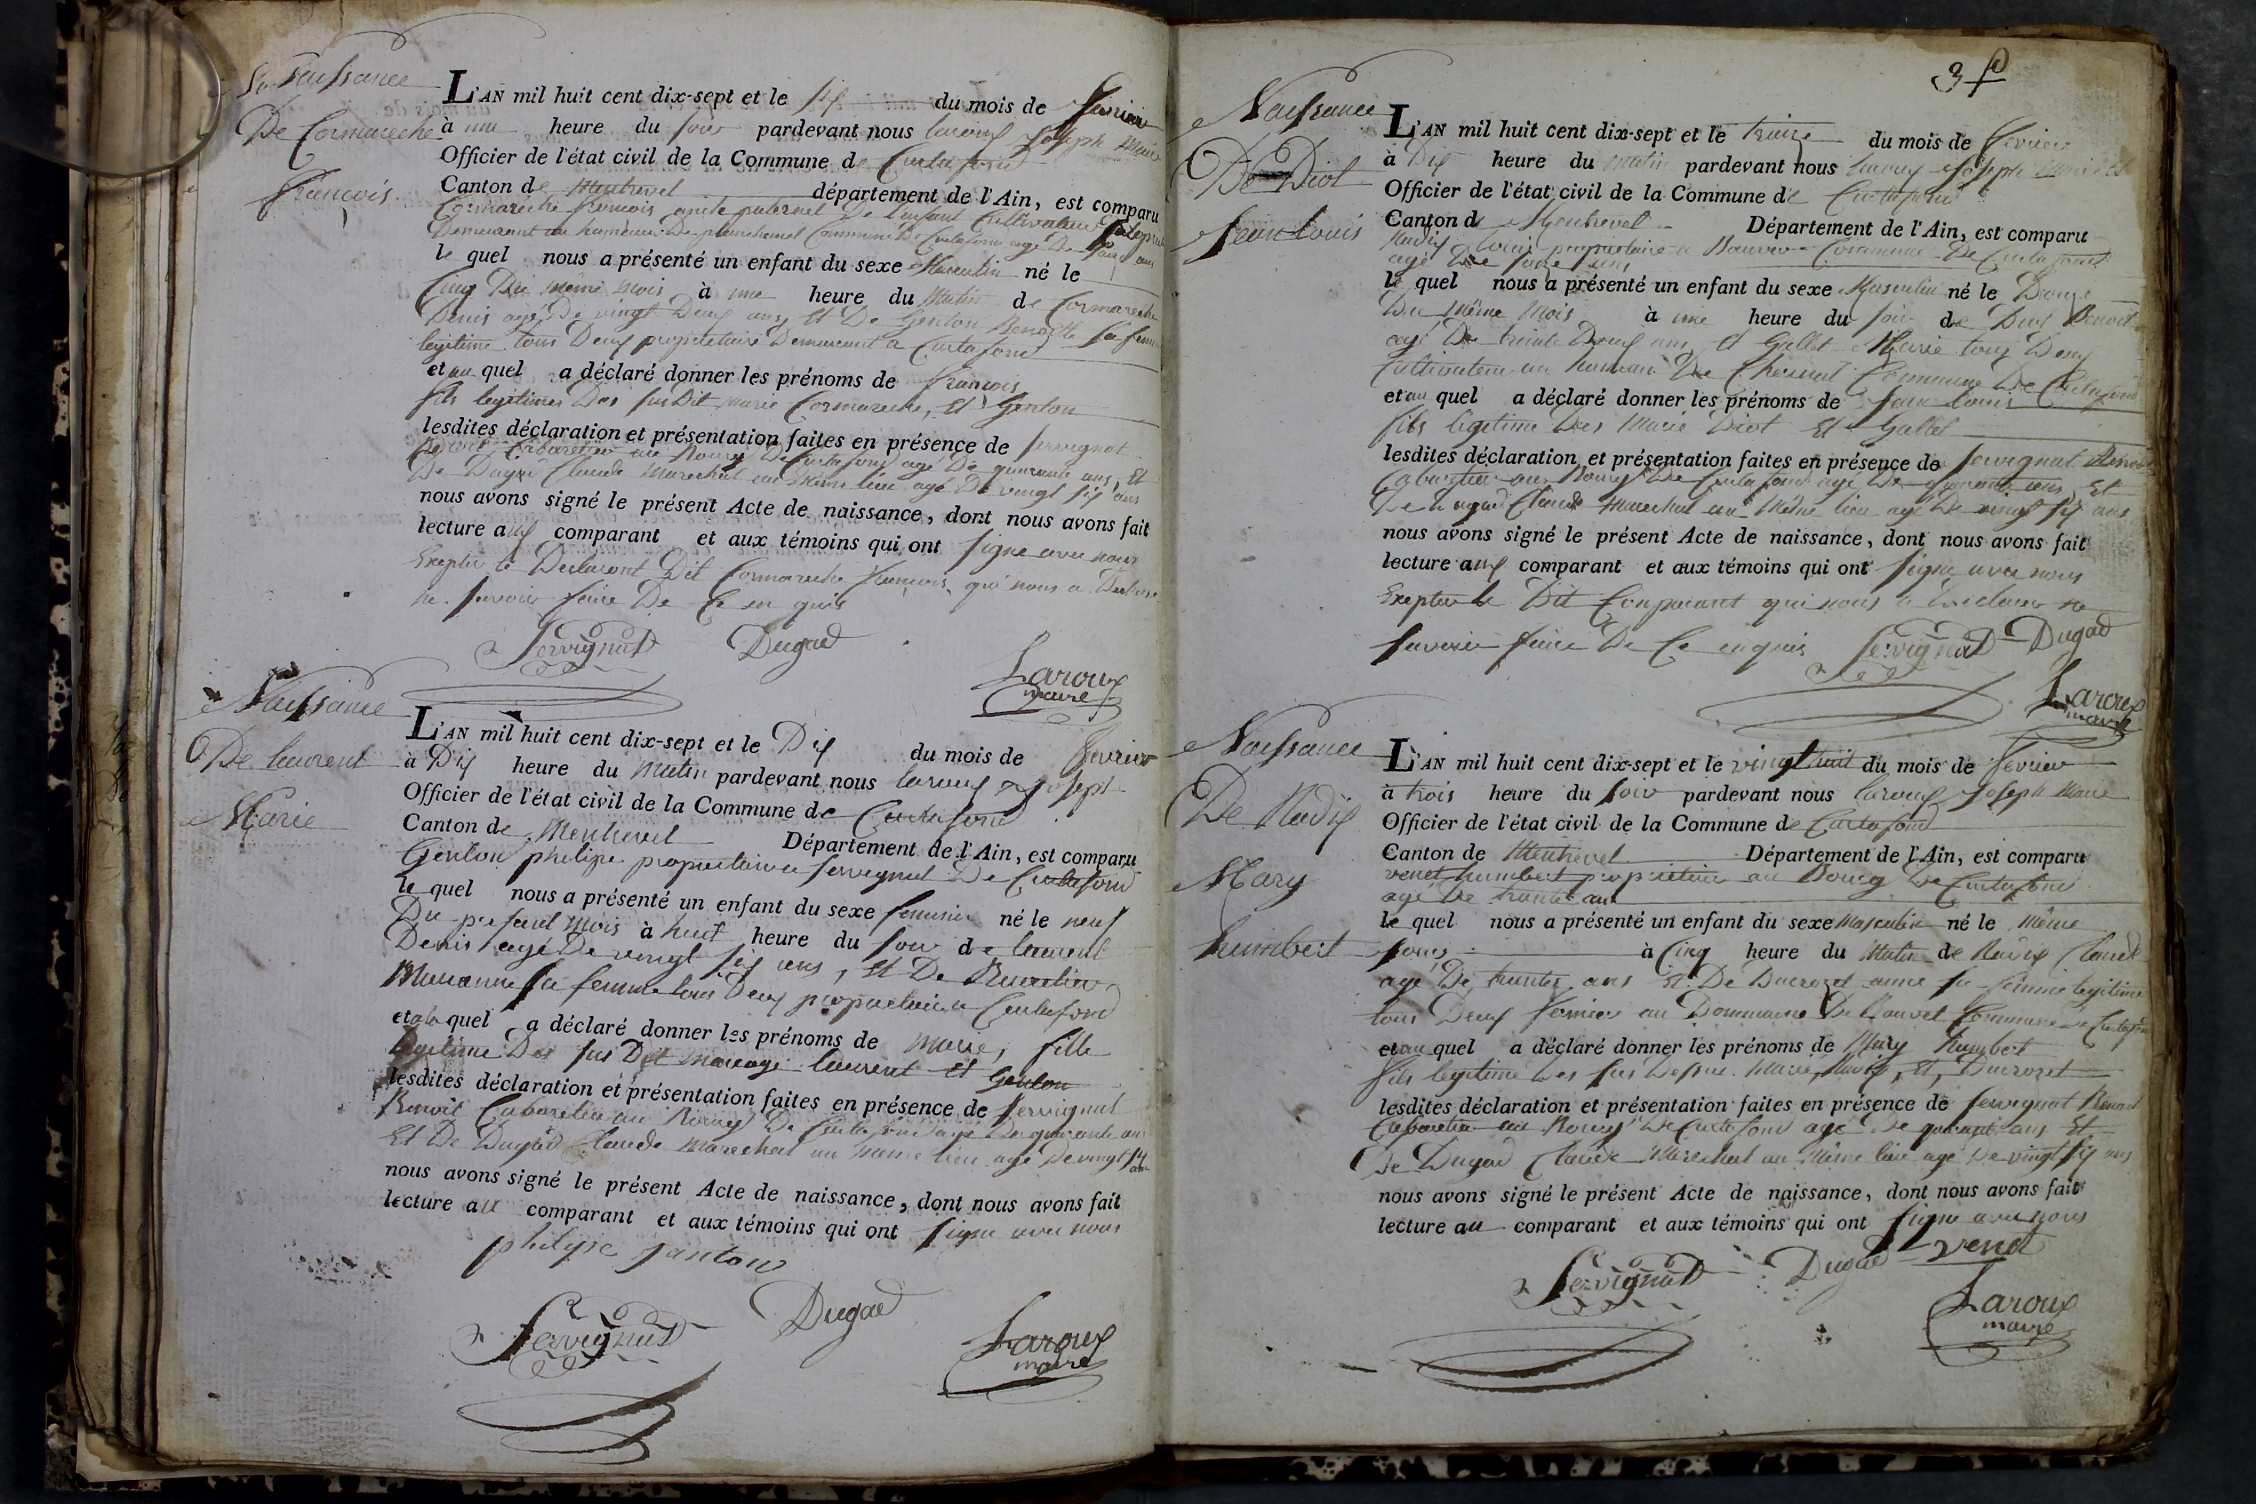 Naissance
De Cormareche
françois
L'AN mil huit cent dix-sept et le six du mois de fevrier
à une heure du soir pardevant nous laroux Joseph Maire
Officier de l'état civil de la Commune de Curtafond
Canton de Montrevel département de l'Ain, est comparu
Cormareche francois oncle paternel De l'enfant Cultivateur
Demeurant au hameau De Commune De Curtafond agé De ans
le quel nous a présenté un enfant du sexe Masculin né le
Cinq Du même mois à une heure du Matin de Cormareche
Denis agé De vingt Deux ans Et De Genton Benoitte sa femme
legitime tous Deux proprietaire Demeurant a Curtafond
et au quel a déclaré donner les prénoms de françois
fils legitime Des sus Dit marié Cormareche, Et Genton
lesdites déclaration et présentation faites en présence de servignat
Benoit Cabaretier au Bourg De Curtafond agé De quarante ans, Et
De Dugad Claude Marechal au Même lieu agé De vingt six ans
nous avons signé le présent Acte de naissance, dont nous avons fait
lecture aux comparant et aux témoins qui ont signé avec nous
Excepter le Declarant Dit Cormareche francois, qui nous a Declaré
ne savoir faire De Ce en quis
Servignat Dugad
Laroux
maire
Naissance
De laurent
Marie
L'AN mil huit cent dix-sept et le Dix du mois de fevrier
à Dix heure du Matin pardevant nous laroux Joseph
Officier de l'état civil de la Commune de Curtafond
Canton de Montrevel Département de l'Ain, est comparu
Genton philipe proprietaire a servignat De Curtafond
le quel nous a présenté un enfant du sexe feminin né le neuf
Du présent Mois à huit heure du soir de laurent
Denis agé De vingt six ans, Et De
Marianne sa femme tous Deux proprietaire a Curtafond
et a la quel a déclaré donner les prénoms de Marie, fille
legitime Des sus Dit mariage laurent et Genton
lesdites déclaration et présentation faites en présence de servignat
Benoit Cabaretier au Bourg De Curtafond agé De quarante ans
Et De Dugad Claude Marechal au meme lieu agé De vingt six ans
nous avons signé le présent Acte de naissance, dont nous avons fait
lecture au comparant et aux témoins qui ont signé avec nous
philipe janton
Servignat Dugad
Laroux
maire
3
Naissance
De Diot
Jean Louis
L'AN mil huit cent dix-sept et le treize du mois de fevrier
à Dix heure du Matin pardevant nous laroux Joseph
Officier de l'état civil de la Commune de Curtafond
Canton de Montrevel Département de l'Ain, est comparu
louis proprietaire a Commune De Curtafond
agé De ans
le quel nous a présenté un enfant du sexe Masculin né le Douze
Du Même Mois à une heure du soir de Diot Benoit
agé De trente Deux ans et Gallet Marie tous Deux
Cultivateur au hameau De Commune De Curtafond
et au quel a déclaré donner les prénoms de Jean Louis
fils legitime Des Marié Diot Et Gallet
lesdites déclaration et présentation faites en présence de servignat Benoit
Cabaretier au Bourg De Curtafond agé De quarante ans, Et
De Dugad Claude Marechal au Même lieu agé De vingt six ans
nous avons signé le présent Acte de naissance, dont nous avons fait
lecture aux comparant et aux témoins qui ont signé avec nous
Excepter le Dit Comparant qui nous a Declarer ne
savoir faire De Ce enquis Servignat Dugad
Laroux
maire
Naissance
De Nadix
Mary
humbert
L'AN mil huit cent dix-sept et le vingt huit du mois de fevrier
à trois heure du soir pardevant nous laroux Joseph Marie
Officier de l'état civil de la Commune de Curtafond
Canton de Montrevel Département de l'Ain, est comparu
venet humbert proprietaire au Bourg De Curtafond
agé De trente ans
le quel nous a présenté un enfant du sexe Masculin né le même
jour à Cinq heure du Matin de Nadix Claude
agé De trente ans Et De Ducrozet anne sa femme legitime
tous Deux fermier au Dommaine De Commune De Curtafond
et au quel a déclaré donner les prénoms de Mary humbert
fils legitime Des sus Dessus Marié, Nadix, Et, Ducrozet
lesdites déclaration et présentation faites en présence de servignat Benoit
Cabaretier au Bourg De Curtafond agé De quarante ans Et
De Dugad Claude Marechal au Même lieu agé De vingt six ans
nous avons signé le présent Acte de naissance, dont nous avons fait
lecture au comparant et aux témoins qui ont signé avec nous
venet
Servignat Dugad
Laroux
maire